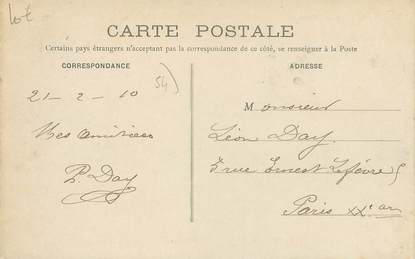 Lot
CARTE POSTALE
Certains pays étrangers n'acceptant pas la correspondance de ce côté, se renseigner à la Poste
CORRESPONDANCE
54)
21-2-10
Mes amitiés
P. Day
ADRESSE
Monsieur
Léon Day.
5 rue Ernest Lefèvre 5
Paris XXe arr